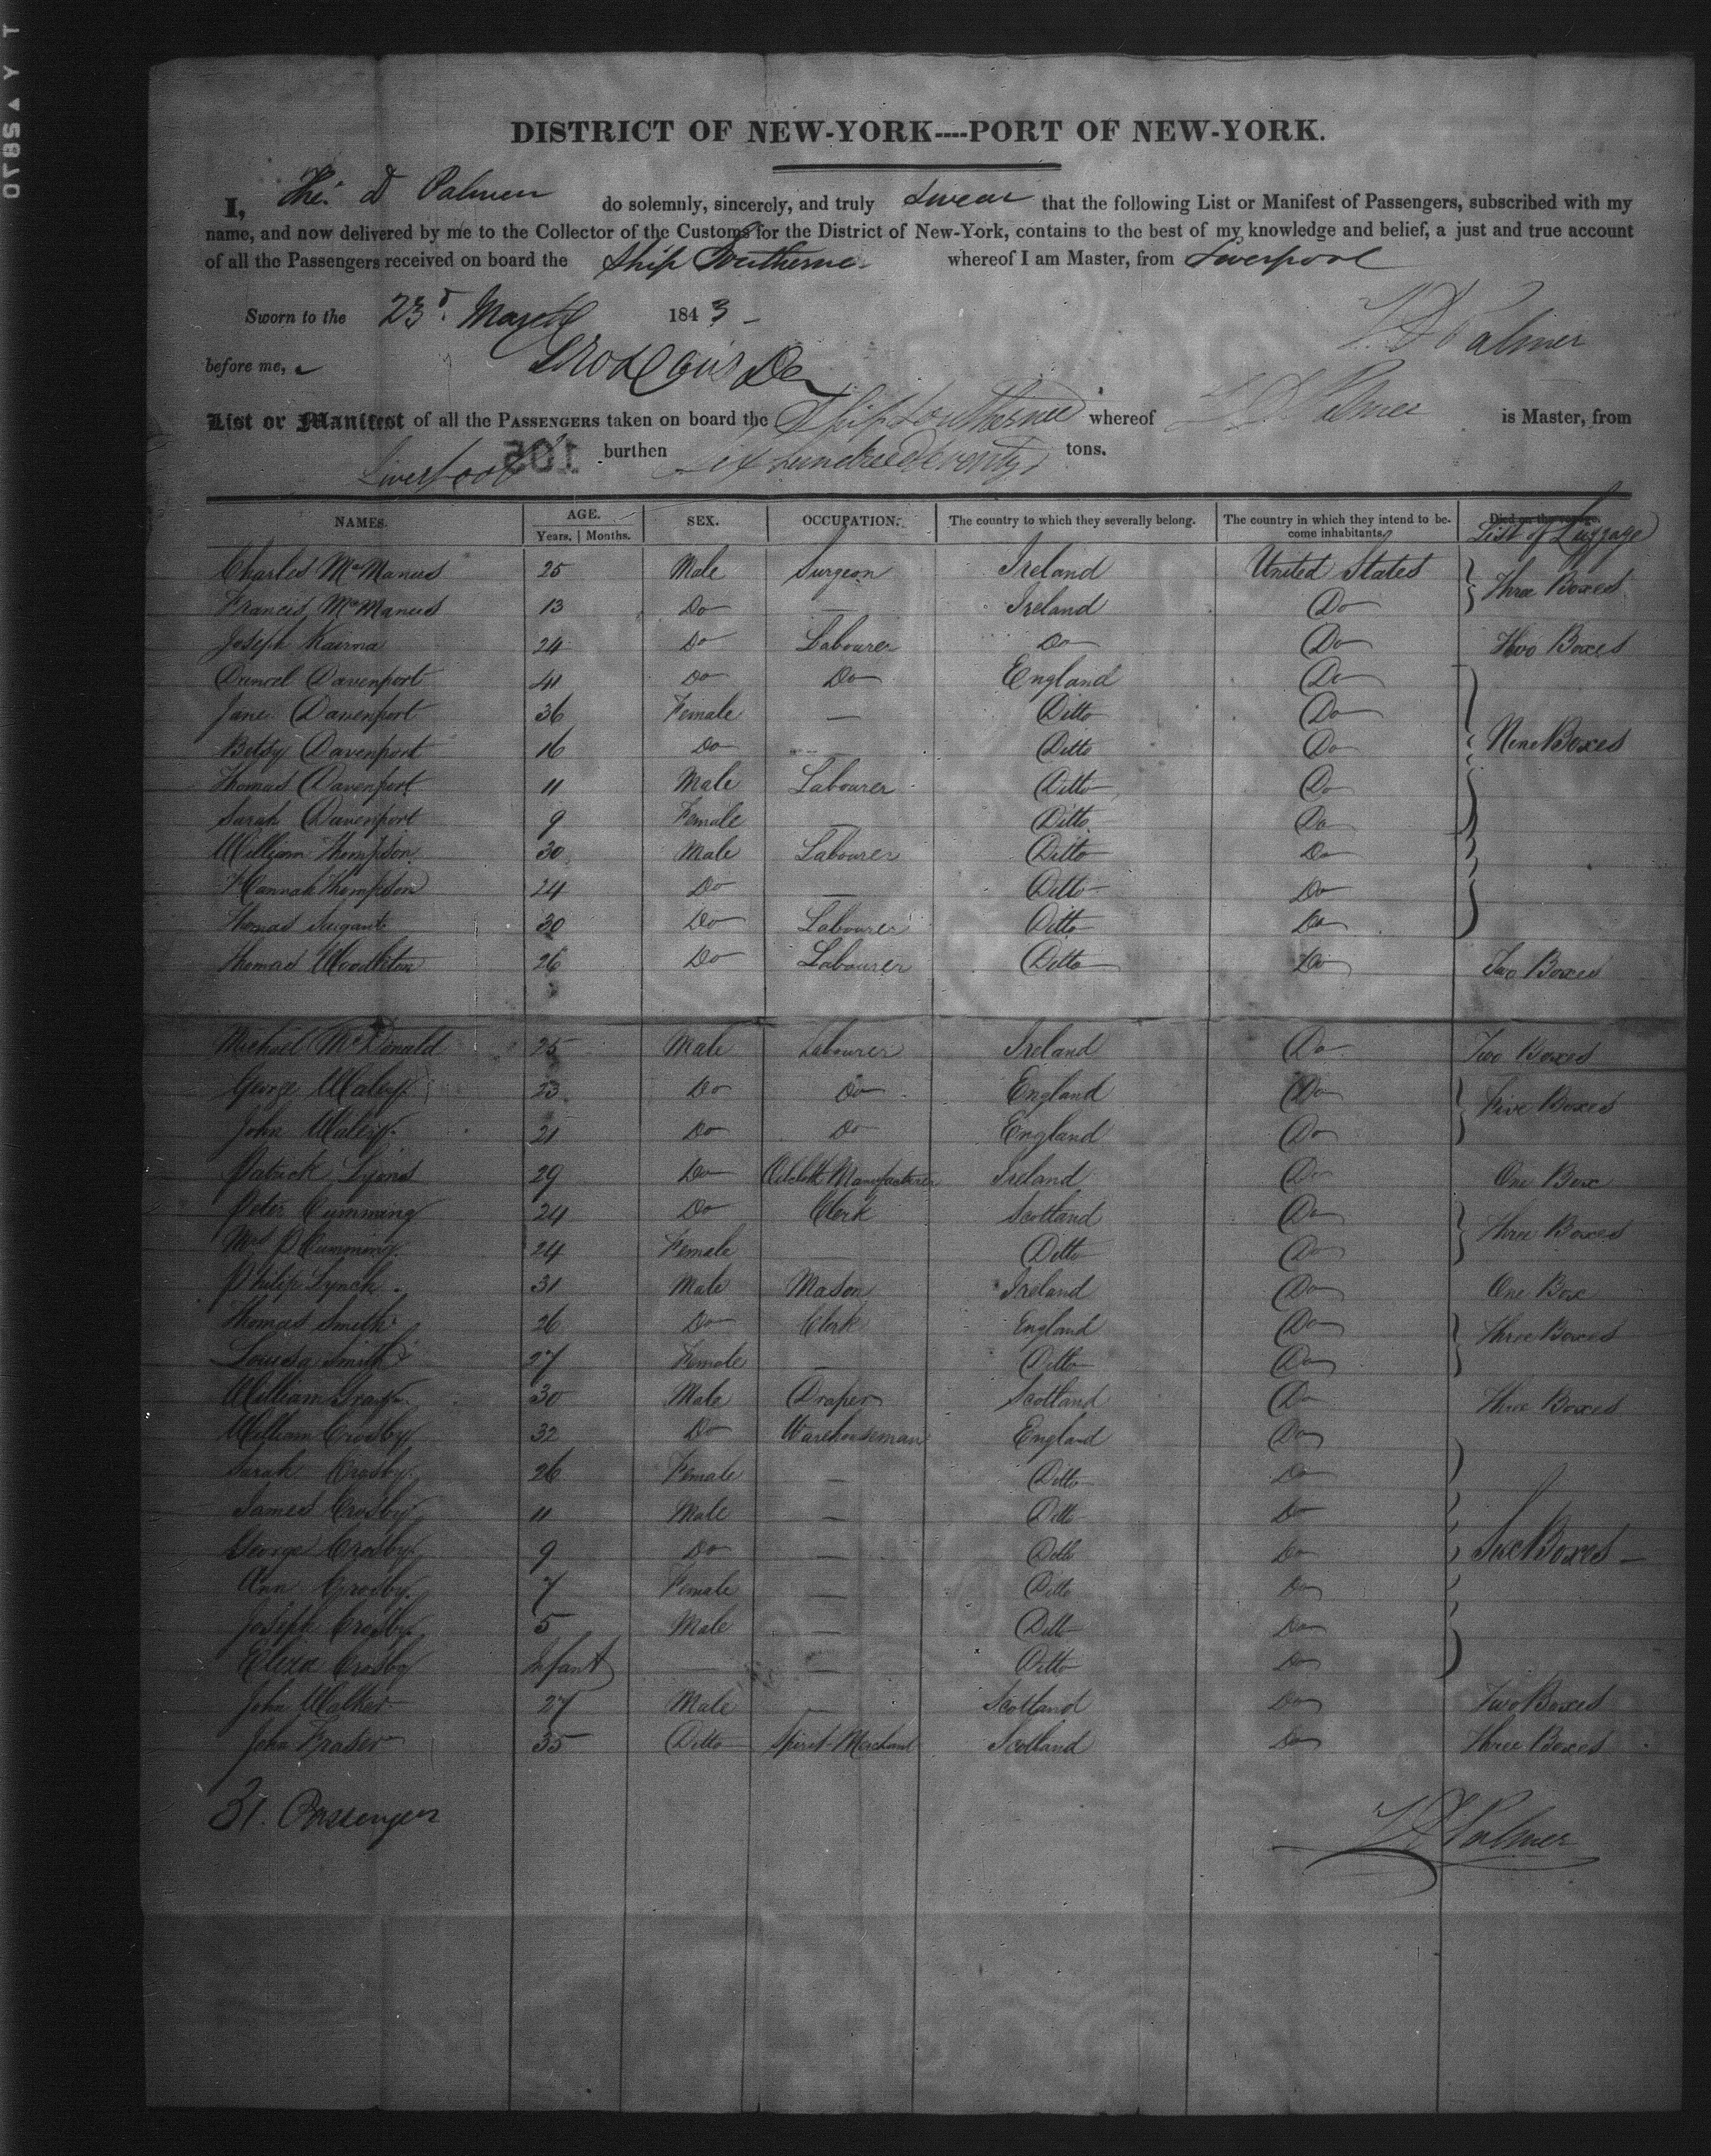 DISTRICT OF NEW-YORK----PORT OF NEW-YORK.
I, Tho. D Palmer do solemnly, sincerely, and truly swear that the following List or Manifest of Passengers, subscribed with my
name, and now delivered by me to the Collector of the Customs for the District of New-York, contains to the best of my knowledge and belief, a just and true account
of all the Passengers received on board the Ship Southerner whereof I am Master, from Liverpool
Sworn to the 23d March 1843 T D Palmer
before me,
List or Manifest of all the PASSENGERS taken on board the Ship Southerner whereof T D Palmer is Master, from
Liverpool 105 burthen Six hundred seventy tons.
NAMES. AGE. SEX. OCCUPATION. The country to which they severally belong. The country in which they intend to become inhabitants. Died on the voyage. List of Luggage
Years. Months.
Charles McManus 25 Male Surgeon Ireland United States Three Boxes
Francis McManus 13 Do — Ireland Do
Joseph 24 Do Labourer Do Do Two Boxes
Davenport 41 Do Do England Do
Jane Davenport 36 Female — Ditto Do
Betsy Davenport 16 Do — Ditto Do Nine Boxes
Thomas Davenport 11 Male Labourer Ditto Do
Sarah Davenport 9 Female — Ditto Do
William Thompson 30 Male Labourer Ditto Do
Hannah Thompson 24 Do — Ditto Do
Thomas 30 Do Labourer Ditto Do
Thomas 26 Do Labourer Ditto Do Two Boxes
Michael McDonald 25 Male Labourer Ireland Do Two Boxes
George 23 Do Do England Do Five Boxes
John 21 Do Do England Do
Patrick Lyons 29 Do Oilcloth Manufacturer Ireland Do One Box
Peter Cumming 24 Do Clerk Scotland Do Three Boxes
Mrs P Cumming 24 Female — Ditto Do
Philip Lynch 31 Male Mason Ireland Do One Box
Thomas Smith 26 Do Clerk England Do Three Boxes
Louisa Smith 27 Female — Ditto Do
William Gray 30 Male Draper Scotland Do Three Boxes
William Crosby 32 Do Warehouseman England Do
Sarah Crosby 26 Female — Ditto Do
James Crosby 11 Male — Ditto Do
George Crosby 9 Do — Ditto Do Six Boxes —
Ann Crosby 7 Female — Ditto Do
Joseph Crosby 5 Male — Ditto Do
Eliza Crosby Infant — — Ditto Do
John Walker 27 Male — Scotland Do Two Boxes
John Fraser 35 Ditto Spirit-Merchant Scotland Do Three Boxes
31. Passengers T D Palmer